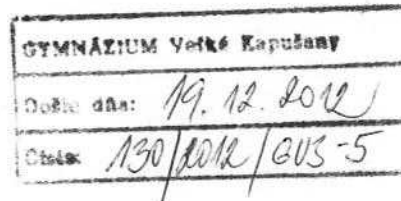 GYMNÁZIUM Veľké Kapušany
Došlo dňa: 19. 12. 2012
Číslo: 130/2012/GVS-5